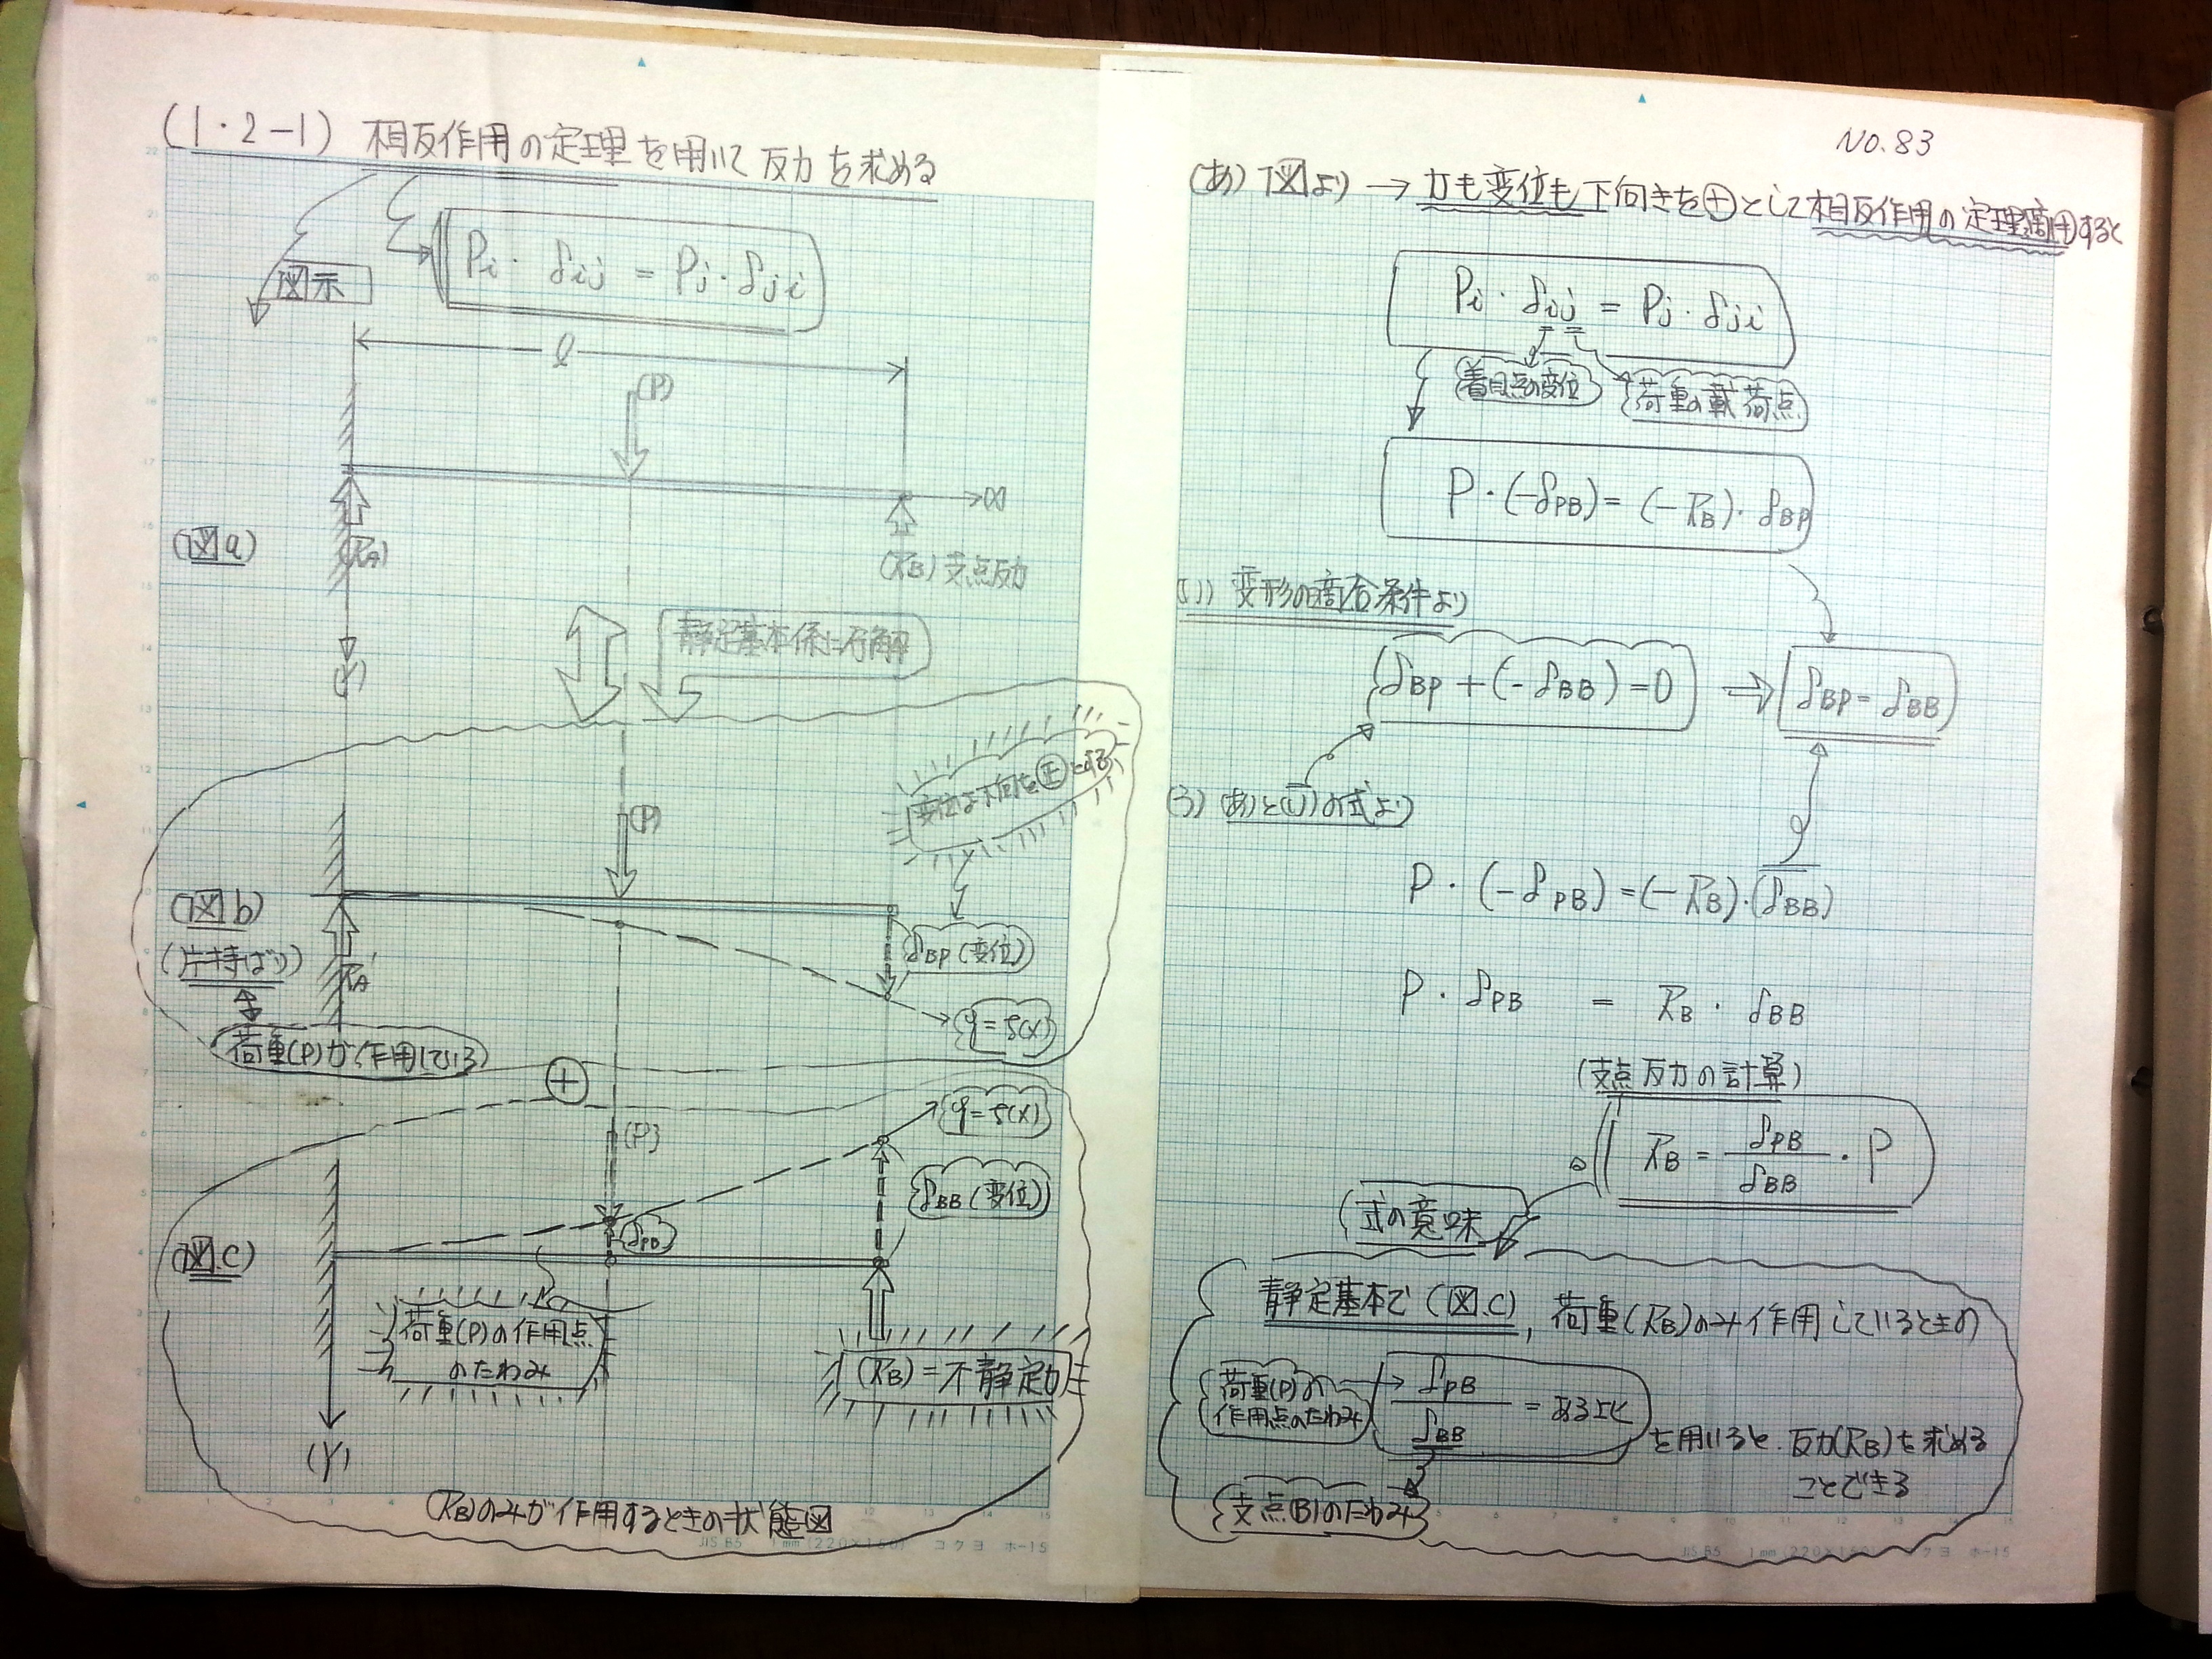 (1・2-1) 相反作用の定理を用いて反力を求める
Pi・δij = Pj・δji
図示
l
(P)
x
(図a)
(RA)
(RB) 支点反力
(Y)
静定基本係に分解
変位は下向を正とする
(P)
(図b)
(片持ばり)
RA'
δBP (変位)
荷重(P)が作用している
y=f(x)
+
y=f(x)
(P)
δBB (変位)
δPB
(図.c)
荷重(P)の作用点
のたわみ
(RB)=不静定力
(Y)
(RB)のみが作用するときの状態図
JIS B5 1mm (220×160) コクヨ ホ-15
NO.83
(あ) 図より → 力も変位も下向きを⊕として相反作用の定理適用すると
Pi・δij = Pj・δji
着目点の変位
荷重の載荷点
P・(-δPB) = (-RB)・δBP
(い) 変形の適合条件より
δBP + (-δBB) = 0 ⇒ δBP = δBB
(う) (あ)と(い)の式より
P・(-δPB) = (-RB)・(δBB)
P・δPB = RB・δBB
(支点反力の計算)
RB = δPB/δBB・P
式の意味
静定基本で(図.c), 荷重(RB)のみ作用しているときの
荷重(P)の
作用点のたわみ
δPB/δBB = ある比
を用いると、反力(RB)を求める
ことできる
支点(B)のたわみ
JIS B5 1mm (220×160) コクヨ ホ-15